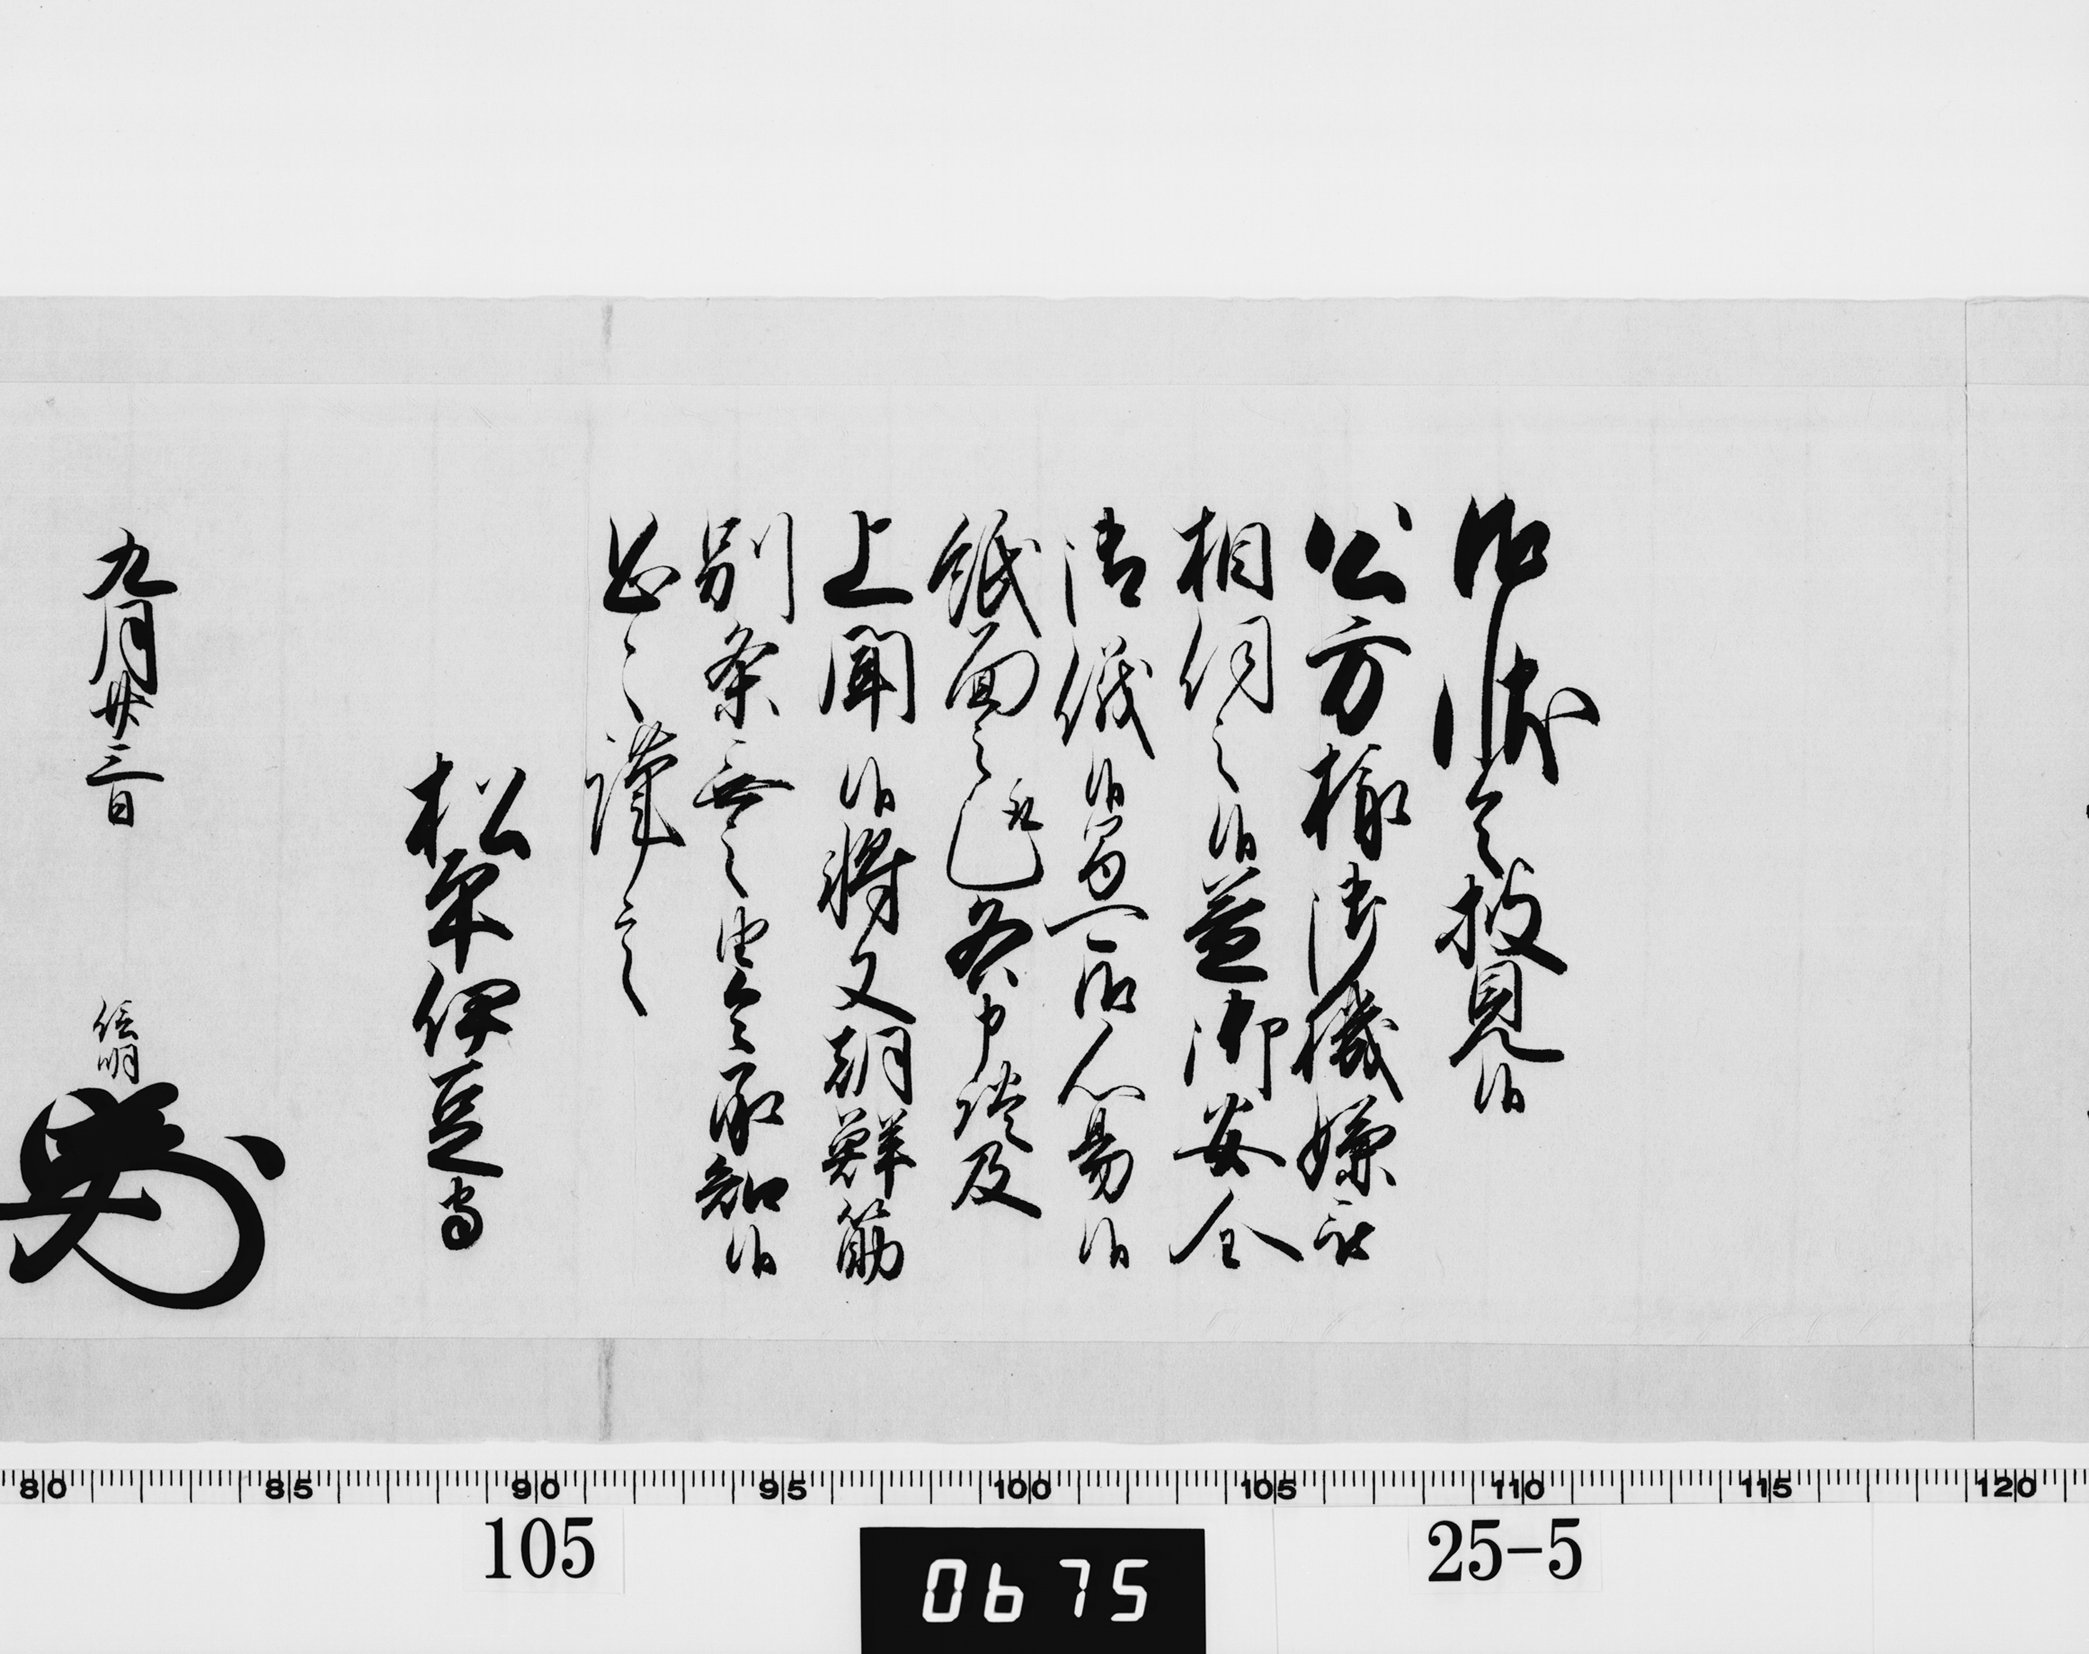 御状令披見候
公方様御機嫌被
相伺之候益御安全
御儀候間可御心易候
紙面之趣各申談及
上聞候将又朝鮮筋
別条無之由令承知候
恐々謹言
松平伊豆守
九月廿三日
信明
80 85 90 95 100 105 110 115 120
105
0675
25-5